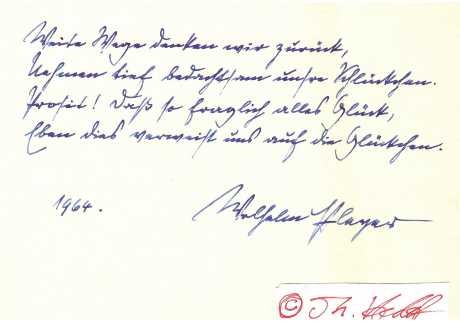 Weite Wege denken wir zurück,
Nehmen tief bedachtsam unsre Schlückchen.
Prosit! Daß so fraglich alles Glück,
Eben dies verweist uns auf die Glückchen.
1964.
Wilhelm Pleyer
© Th.